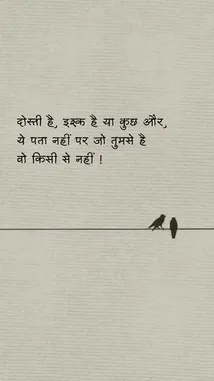 दोस्ती है, इश्क है या कुछ और,
ये पता नहीं पर जो तुमसे है
वो किसी से नहीं !